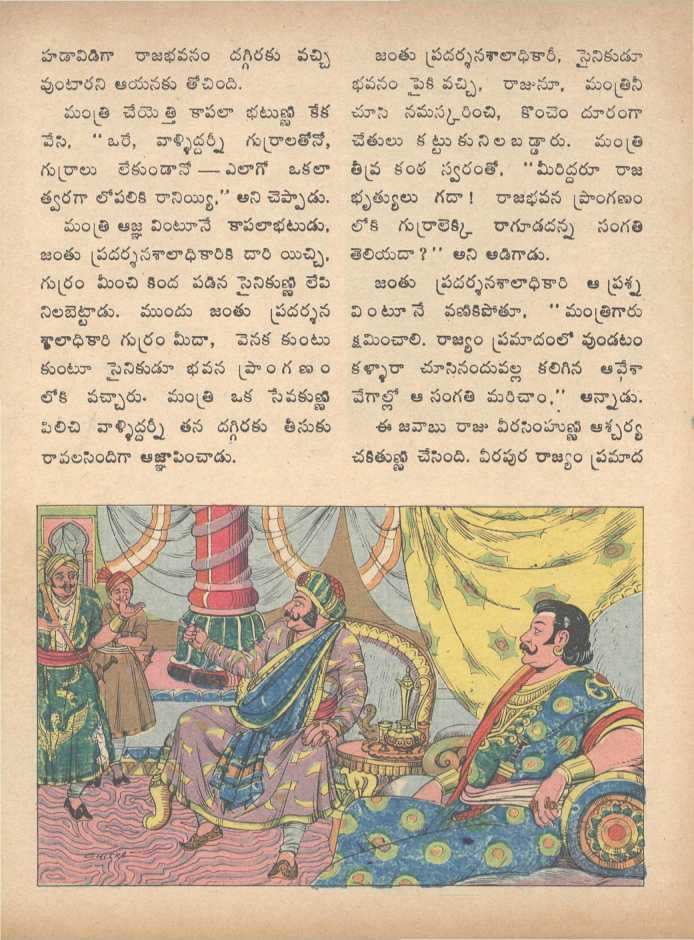 హడావిడిగా రాజభవనం దగ్గిరకు వచ్చి
వుంటారని ఆయనకు తోచింది.
మంత్రి చేయెత్తి కాపలా భటుణ్ణి కేక
వేసి, "ఒరే, వాళ్ళిద్దర్నీ గుర్రాలతోనో,
గుర్రాలు లేకుండానో — ఎలాగో ఒకలా
త్వరగా లోపలికి రానియ్యి," అని చెప్పాడు.
మంత్రి ఆజ్ఞ వింటూనే కాపలాభటుడు,
జంతు ప్రదర్శనశాలాధికారికి దారి యిచ్చి,
గుర్రం మీంచి కింద పడిన సైనికుణ్ణి లేపి
నిలబెట్టాడు. ముందు జంతు ప్రదర్శన
శాలాధికారి గుర్రం మీదా, వెనక కుంటు
కుంటూ సైనికుడూ భవన ప్రాంగణం
లోకి వచ్చారు. మంత్రి ఒక సేవకుణ్ణి
పిలిచి వాళ్ళిద్దర్నీ తన దగ్గిరకు తీసుకు
రావలసిందిగా ఆజ్ఞాపించాడు.
జంతు ప్రదర్శనశాలాధికారీ, సైనికుడూ
భవనం పైకి వచ్చి, రాజునూ, మంత్రినీ
చూసి నమస్కరించి, కొంచెం దూరంగా
చేతులు కట్టుకునిలబడ్డారు. మంత్రి
తీవ్ర కంఠ స్వరంతో, "మీరిద్దరూ రాజ
భృత్యులు గదా! రాజభవన ప్రాంగణం
లోకి గుర్రాలెక్కి రాగూడదన్న సంగతి
తెలియదా?" అని అడిగాడు.
జంతు ప్రదర్శనశాలాధికారి ఆ ప్రశ్న
వింటూనే వణికిపోతూ, "మంత్రిగారు
క్షమించాలి. రాజ్యం ప్రమాదంలో వుండటం
కళ్ళారా చూసినందువల్ల కలిగిన ఆవేశా
వేగాల్లో ఆ సంగతి మరిచాం," అన్నాడు.
ఈ జవాబు రాజు వీరసింహుణ్ణి ఆశ్చర్య
చకితుణ్ణి చేసింది. వీరపుర రాజ్యం ప్రమాద